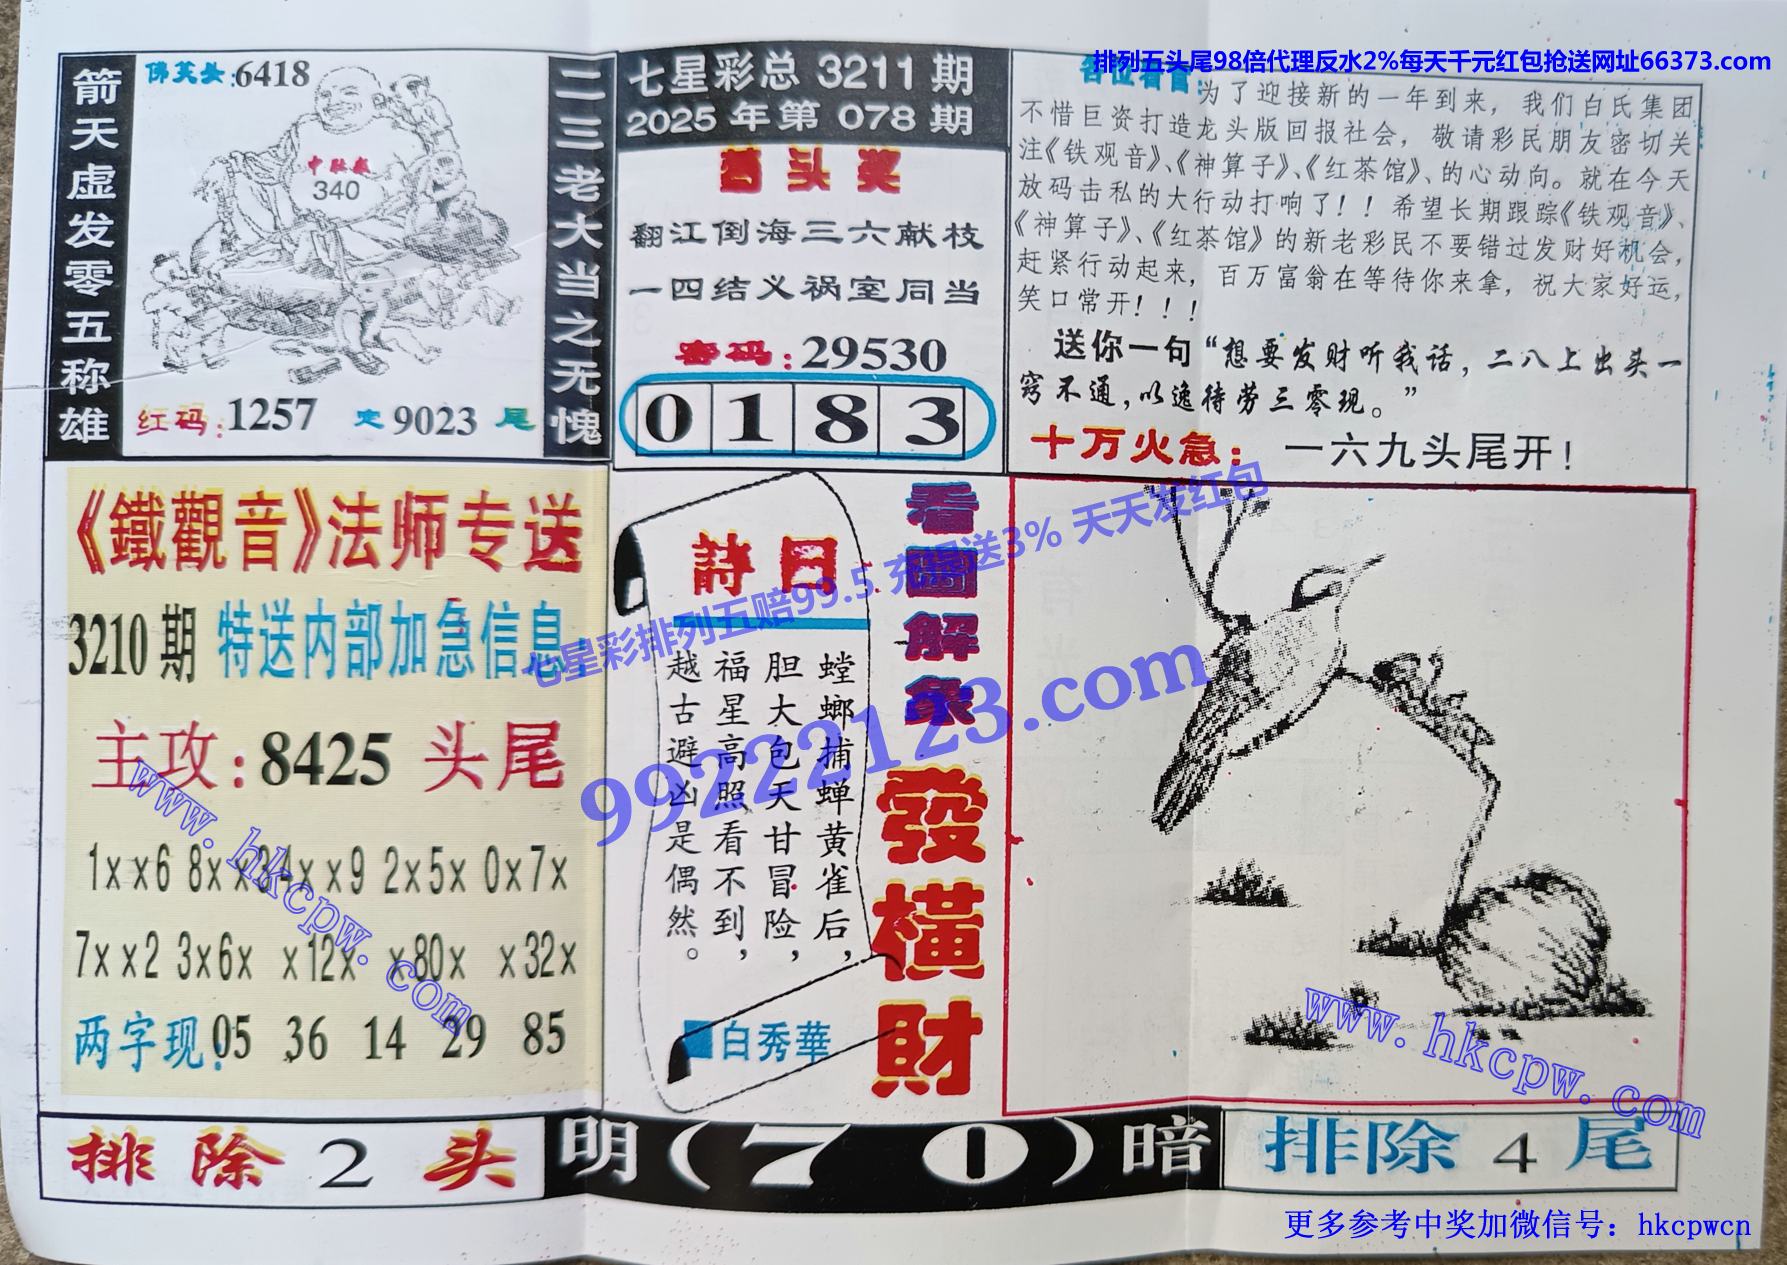 排列五头尾98倍代理反水2%每天千元红包抢送网址66373.com
箭天虚发零五称雄
佛笑头:6418
中肚藏
340
红码:1257 定9023尾
二三老大当之无愧
七星彩总 3211 期
2025 年第 078 期
翻江倒海三六献枝
一四结义祸室同当
密码:29530
0 1 8 3
各位看官:为了迎接新的一年到来，我们白氏集团
不惜巨资打造龙头版回报社会，敬请彩民朋友密切关
注《铁观音》、《神算子》、《红茶馆》、的心动向。就在今天
放码击私的大行动打响了！！希望长期跟踪《铁观音》、
《神算子》、《红茶馆》的新老彩民不要错过发财好机会，
赶紧行动起来，百万富翁在等待你来拿，祝大家好运，
笑口常开！！！
送你一句“想要发财听我话，二八上出头一
窍不通，以逸待劳三零现。”
十万火急：一六九头尾开！
《鐵觀音》法师专送
3210 期 特送内部加急信息:
主攻:8425 头尾
1xx6 8xx3 4xx9 2x5x 0x7x
7xx2 3x6x x12x x80x x32x
两字现:05 36 14 29 85
詩曰
螳螂捕蝉黄雀后，
胆大包天甘冒险，
福星高照看不到，
越古避凶是偶然。
白秀華
看圖解象
發橫財
七星彩排列五赔99.5 充值送3% 天天发红包
99222123.com
www.hkcpw.com
www.hkcpw.com
排除2头
明(70)暗
排除4尾
更多参考中奖加微信号：hkcpwcn